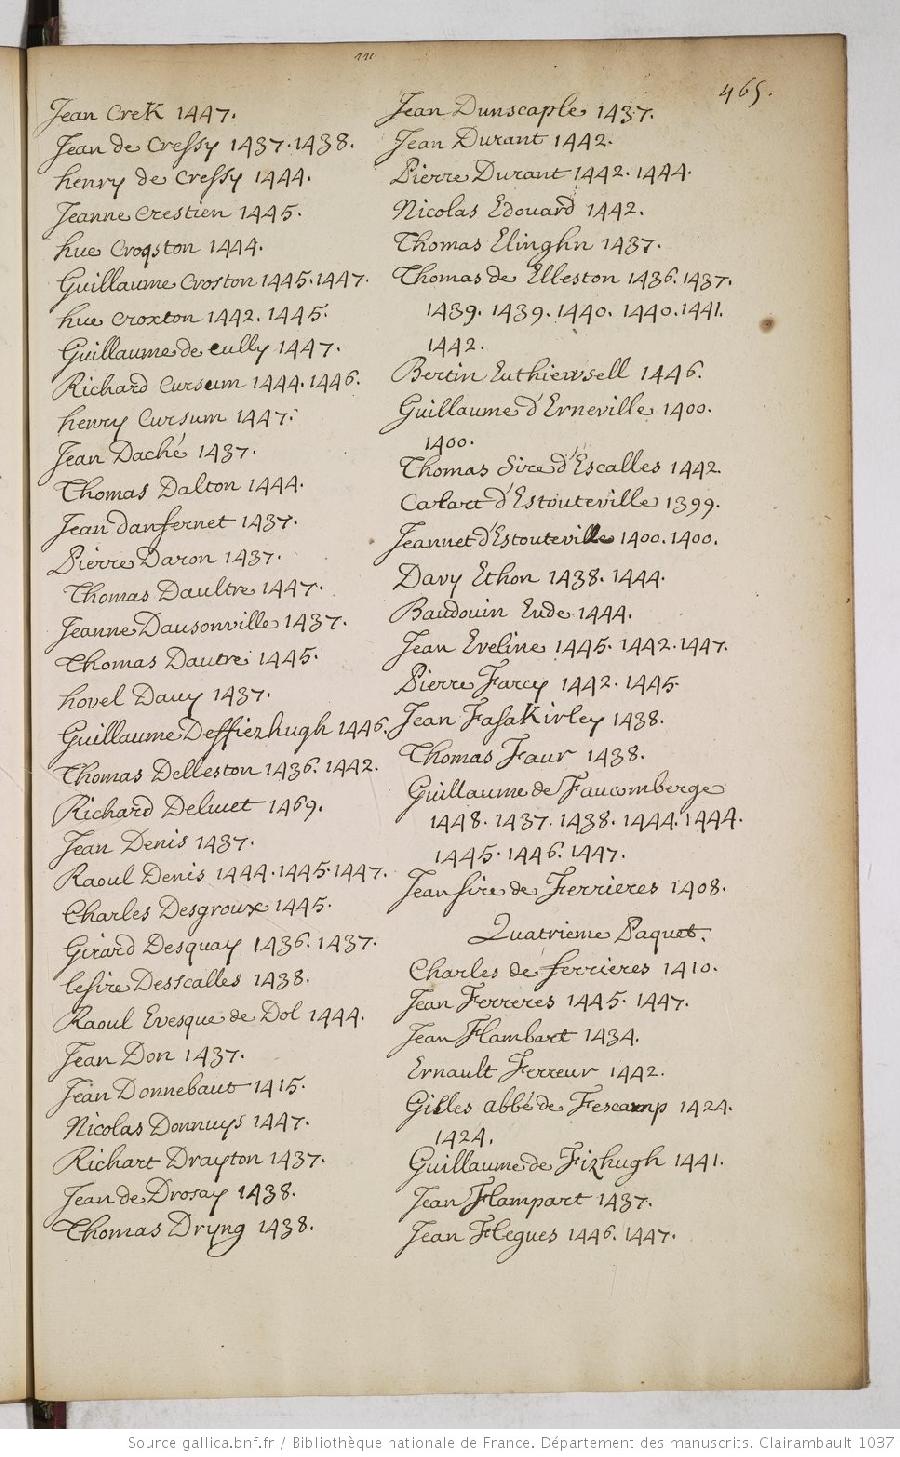 465.
Jean Crek 1447.
Jean de Cressy 1437. 1438.
henry de Cressy 1444.
Jeanne Crestien 1445.
hue Croqston 1444.
Guillaume Croston 1445. 1447.
hue Croxton 1442. 1445.
Guillaume de Cully 1447.
Richard Cursum 1444. 1446.
henry Cursum 1447.
Jean Daché 1437.
Thomas Dalton 1444.
Jean danfernet 1437.
Pierre Daron 1437.
Thomas Daultre 1447.
Jeanne Dausonville 1437.
Thomas Dautre 1445.
hovel Davy 1437.
Guillaume Deffiezhugh 1446.
Thomas Delleston 1436. 1442.
Richard Deluuet 1469.
Jean Denis 1437.
Raoul Denis 1444. 1445. 1447.
Charles Desgroux 1445.
Girard Desquay 1436. 1437.
le sire Desscalles 1438.
Raoul Evesque de Dol 1444.
Jean Don 1437.
Jean Donnebaut 1415.
Nicolas Donnuys 1447.
Richart Drayton 1437.
Jean de Drosay 1438.
Thomas Dryng 1438.
Jean Dunscaple 1437.
Jean Durant 1442.
Pierre Durant 1442. 1444.
Nicolas Edouard 1442.
Thomas Elinghn 1437.
Thomas de Elleston 1436. 1437.
1439. 1439. 1440. 1440. 1441.
1442.
Bertin Euthiewsell 1446.
Guillaume d'Erneville 1400.
1400.
Thomas Sire d'Escalles 1442.
Carbart d'Estouteville 1399.
Jeannet d'Estouteville 1400. 1400.
Davy Ethon 1438. 1444.
Baudouin Eude 1444.
Jean Eveline 1445. 1442. 1447.
Pierre Farcy 1442. 1445.
Jean Fasakirley 1438.
Thomas Faur 1438.
Guillaume de Faucomberge
1448. 1437. 1438. 1444. 1444.
1445. 1446. 1447.
Jean sire de Ferrieres 1408.
Quatrieme Paquet.
Charles de ferrieres 1410.
Jean Ferreres 1445. 1447.
Jean Flambart 1434.
Ernault Ferreur 1442.
Gilles abbé de Fescamp 1424.
1424.
Guillaume de Fizhugh 1441.
Jean Flampart 1437.
Jean Flegues 1446. 1447.
Source gallica.bnf.fr / Bibliothèque nationale de France. Département des manuscrits. Clairambault 1037